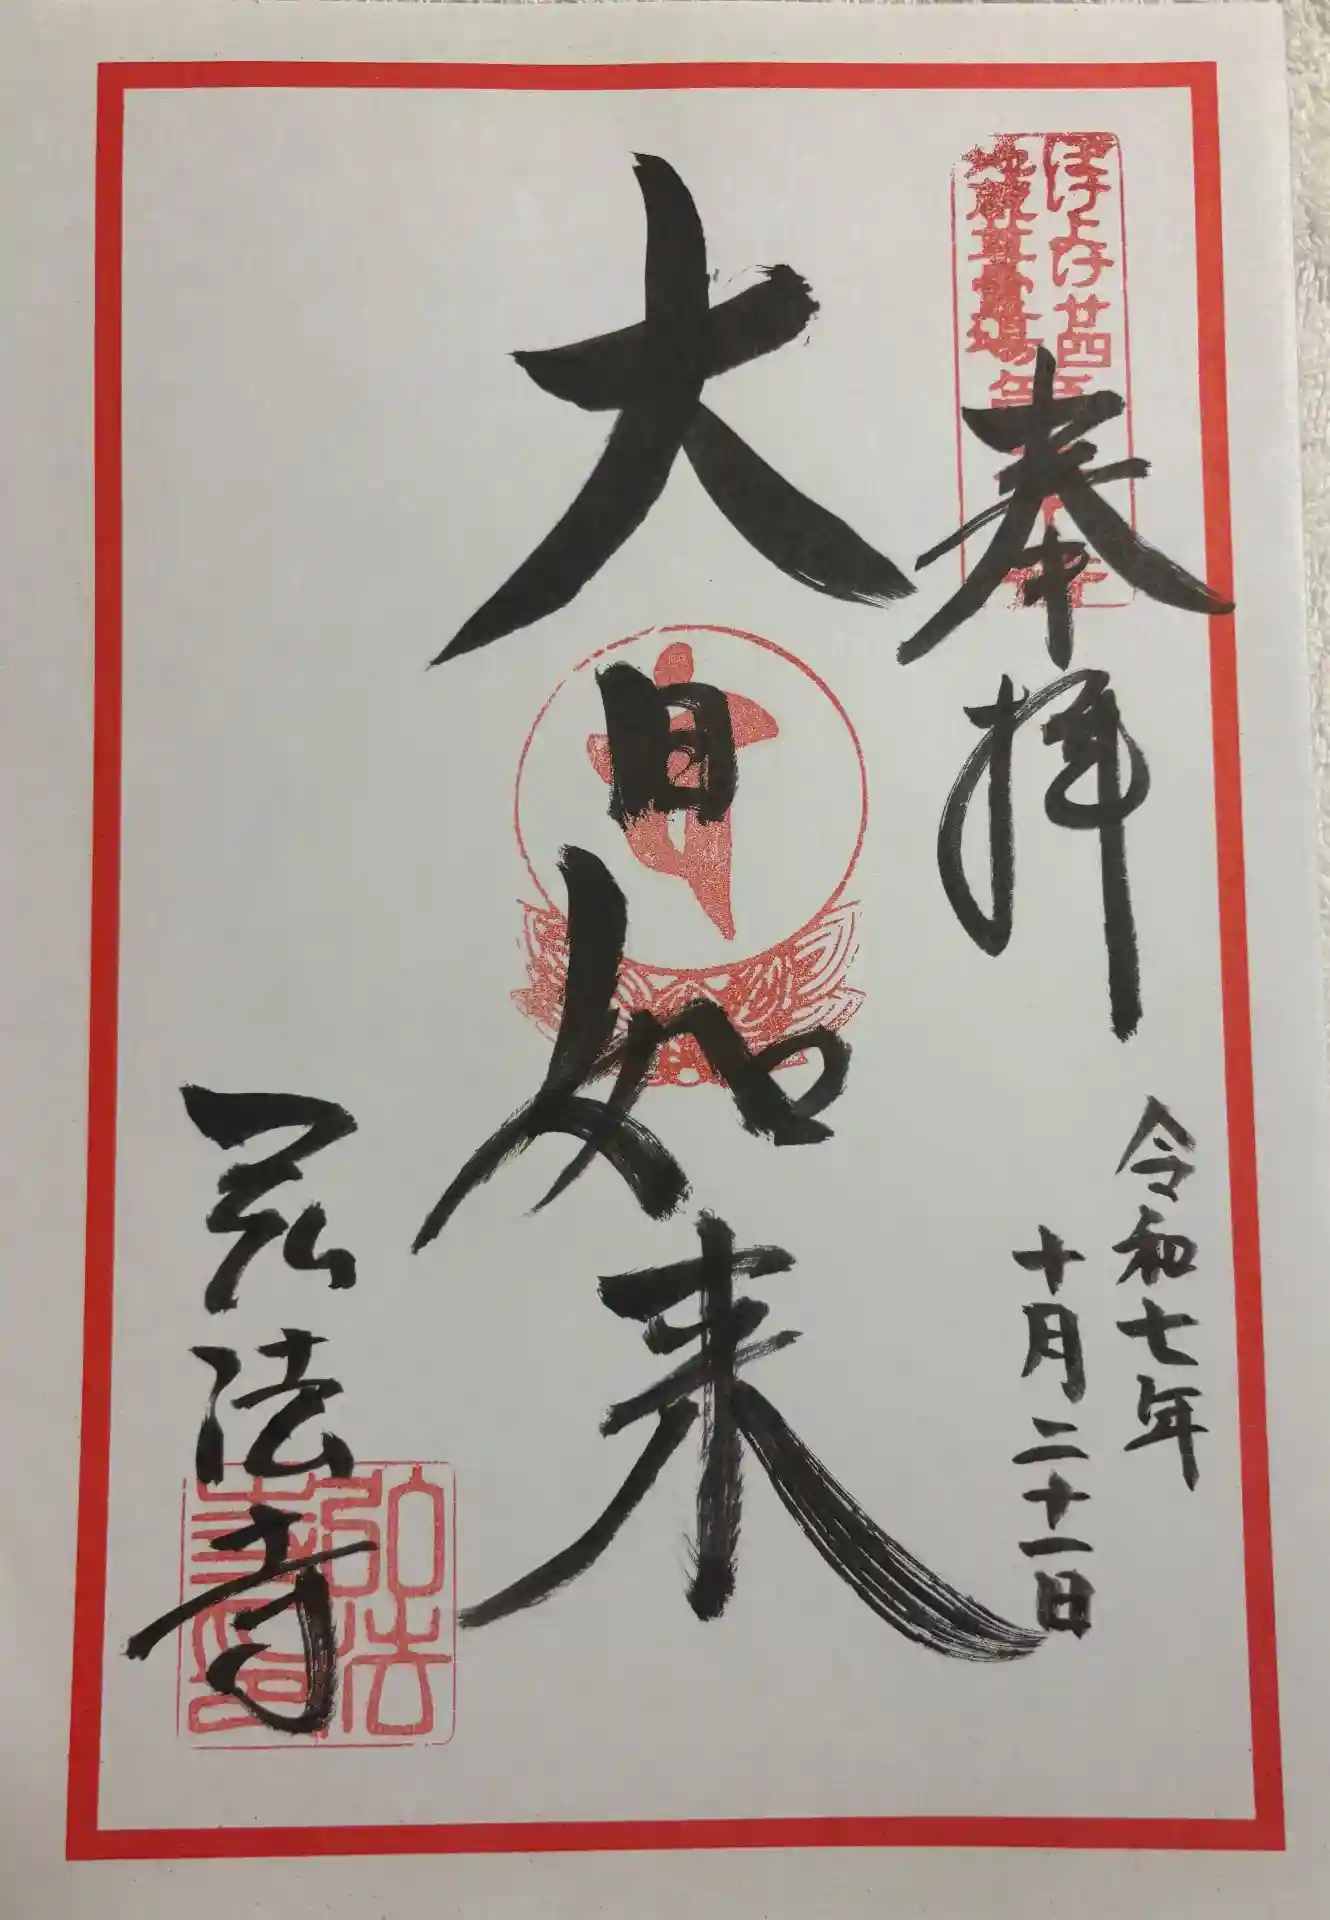 ぼけよけ廿四
地蔵尊霊場
奉拝
令和七年
十月二十一日
大日如来
弘法寺
弘法
寺印